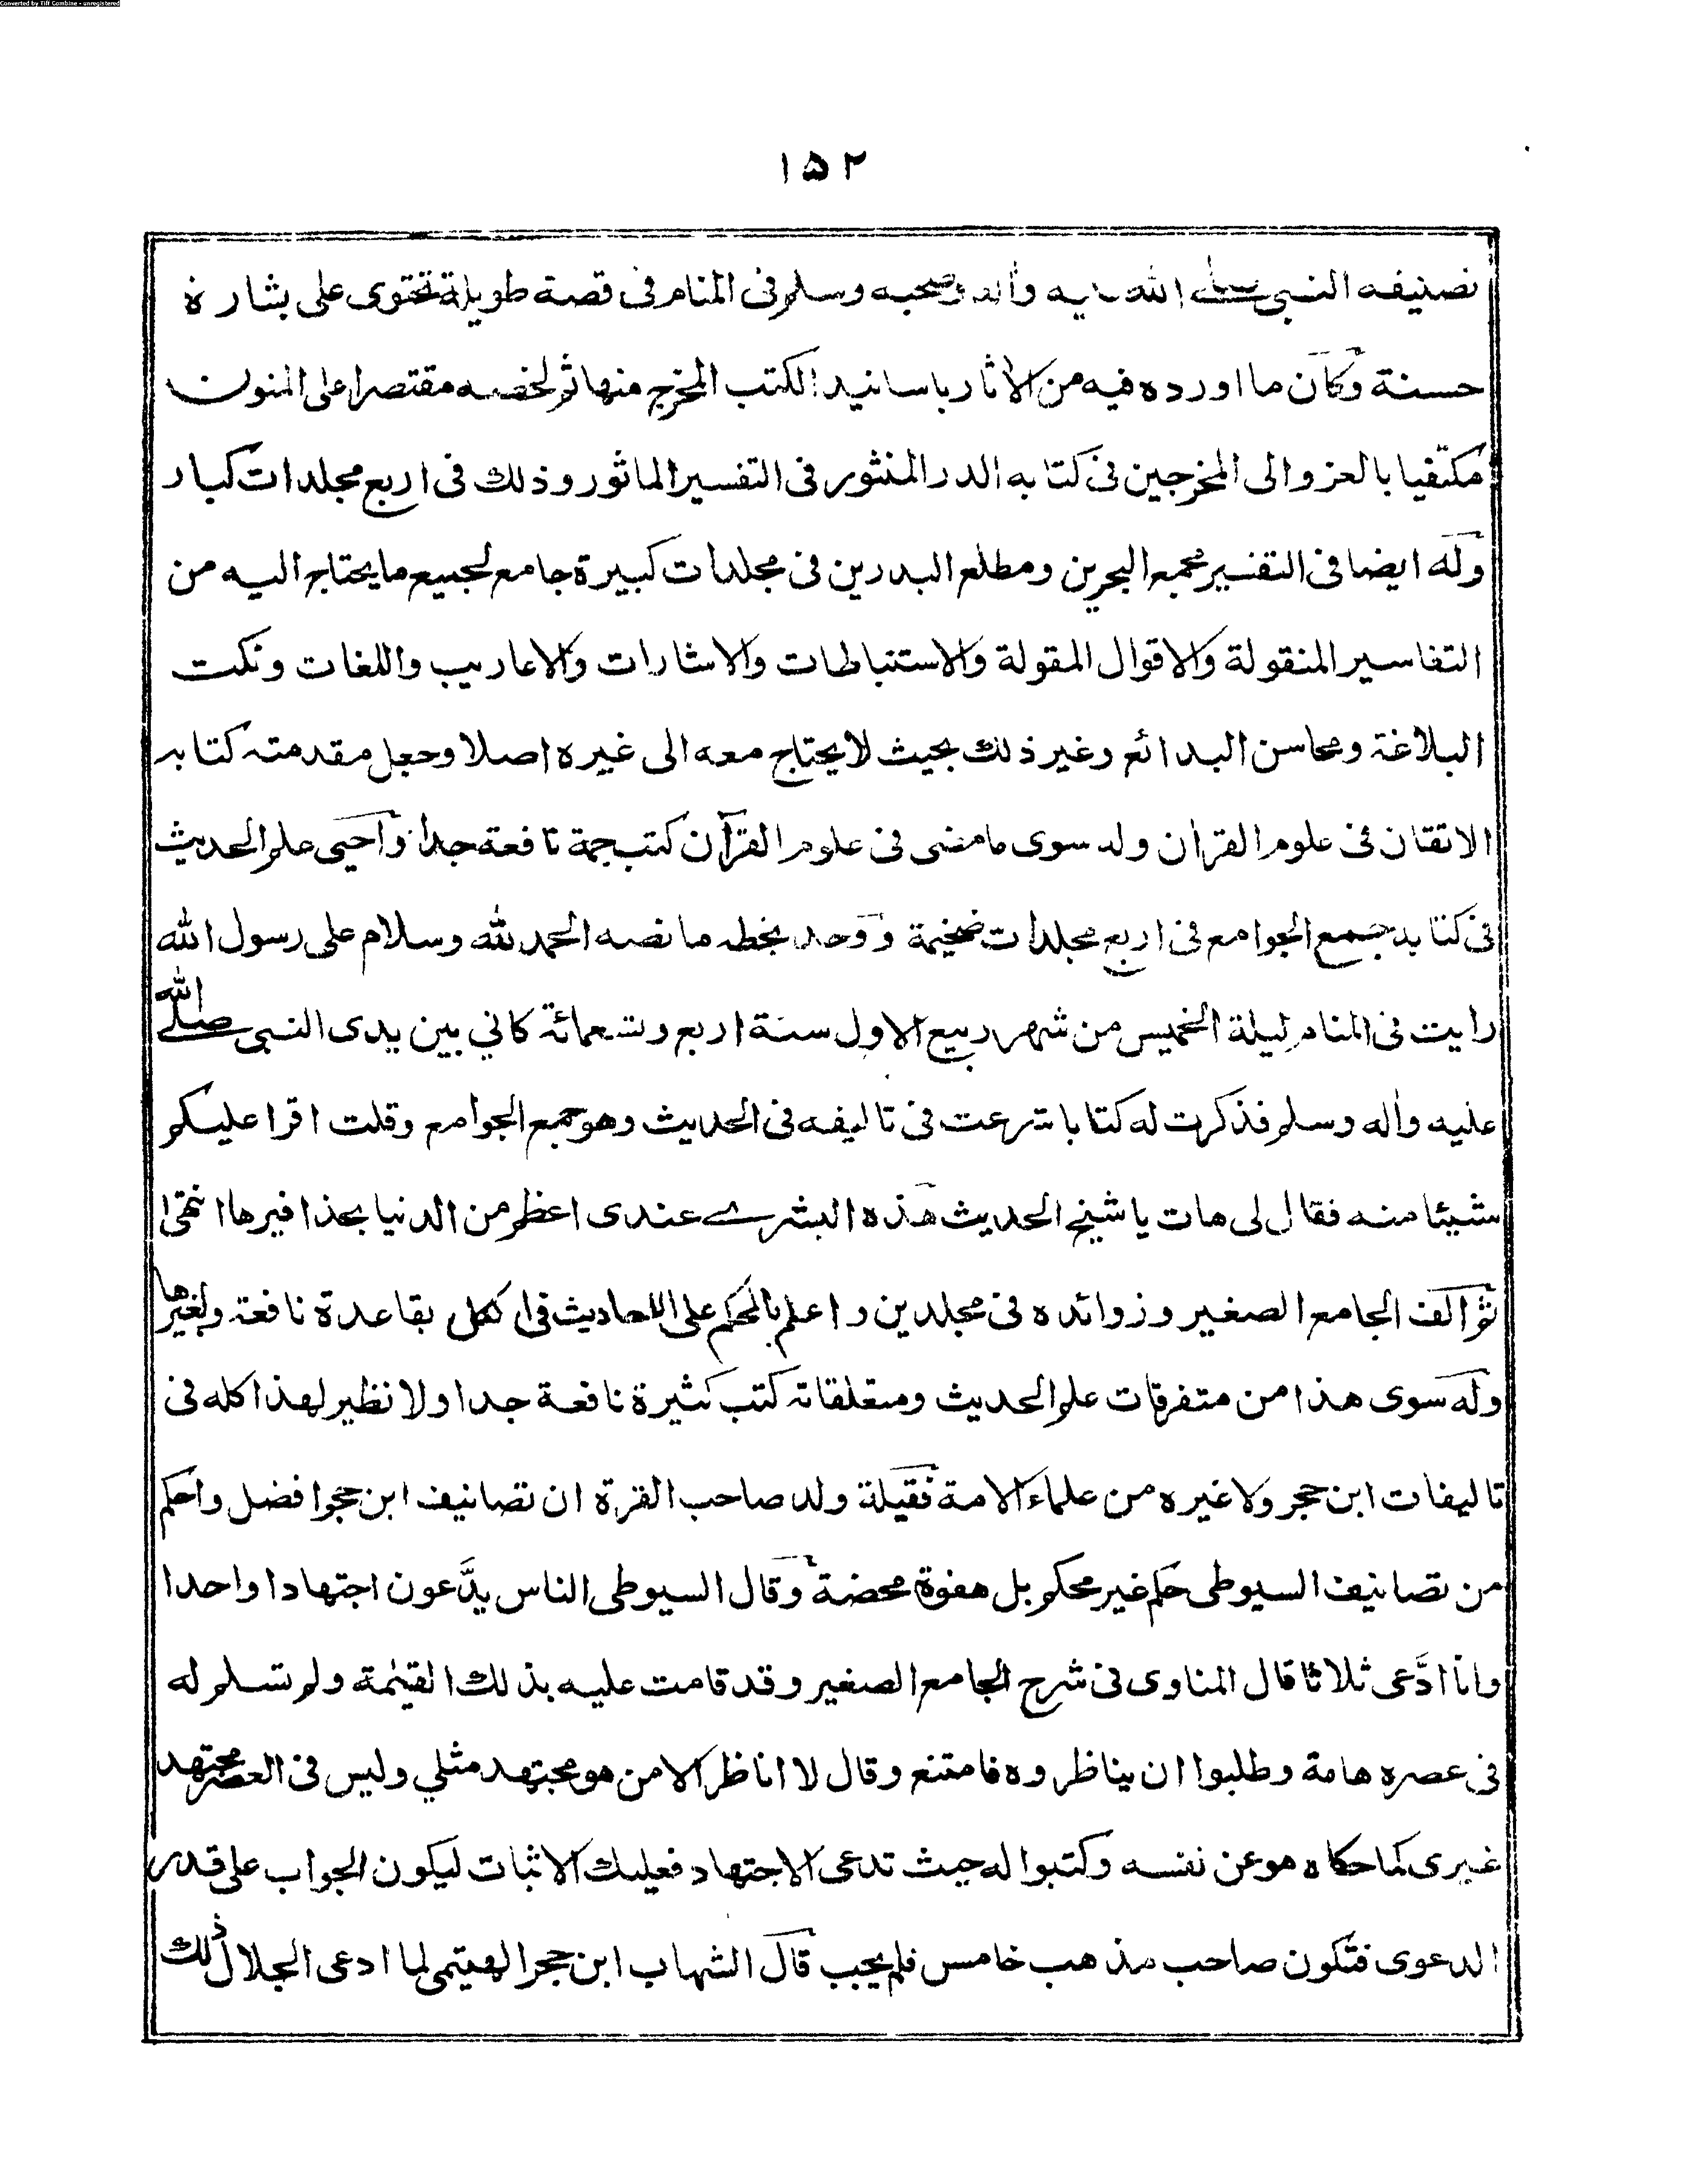 Converted by Tiff Combine - unregistered
١٥٢
تصنيفه النبى صلے الله عليه واٰله وصحبه وسلم فى المنام فى قصة طويلة تحتوى على بشارة
حسنة وكان ما اورده فيه من الاثار باسانيد الكتب المخرج منها ثم لخصه مقتصرا على المتون
مكتفيا بالعزو الى المخرجين فى كتابه الدر المنثور فى التفسير الماثور وذلك فى اربع مجلدات كبار
وله ايضا فى التفسير مجمع البحرين ومطلع البدرين فى مجلدات كبيرة جامع لجميع ما يحتاج اليه من
التفاسير المنقولة والاقوال المقولة والاستنباطات والاشارات والاعاريب واللغات ونكت
البلاغة ومحاسن البدائع وغير ذلك بحيث لا يحتاج معه الى غيره اصلا وجعل مقدمته كتابه
الاتقان فى علوم القراٰن وله سوى ما مضى فى علوم القرآن كتب جمة نافعة جدا واحيى علم الحديث
فى كتابه جمع الجوامع فى اربع مجلدات ضخيمة ووجد بخطه ما نصه الحمد لله وسلام على رسول الله
رايت فى المنام ليلة الخميس من شهر ربيع الاول سنة اربع وتسعمائة كاني بين يدى النبى صلے الله
عليه واٰله وسلم فذكرت له كتابا شرعت فى تاليفه فى الحديث وهو جمع الجوامع وقلت اقرا عليكم
شيئا منه فقال لى هات يا شيخ الحديث هذه البشرے عندى اعظم من الدنيا بحذافيرها انتهى
ثم الف الجامع الصغير وزوائده فى مجلدين واعلم بالحكم على الاحاديث فى لكل بقاعدة نافعة ولغيرها
وله سوى هذا من متفرقات علم الحديث ومتعلقاته كتب كثيرة نافعة جدا ولا نظير لهذا كله فى
تاليفات ابن حجر ولا غيره من علماء الامة فقيلة ولد صاحب القرة ان تصانيف ابن حجر افضل واحكم
من تصانيف السيوطى حكم غير محكم بل هفوة محضة وقال السيوطى الناس يدَّعون اجتهادا واحدا
وانا ادَّعى ثلاثا قال المناوى فى شرح الجامع الصغير وقد قامت عليه بذلك القيٰمة ولم تسلم له
فى عصره هامة وطلبوا ان يناظروه فامتنع وقال لا اناظر الا من هو مجتهد مثلي وليس فى العصر مجتهد
غيرى كما حكاه هو عن نفسه وكتبوا له حيث تدعى الاجتهاد فعليك الاثبات ليكون الجواب على قدر
الدعوى فتكون صاحب مذهب خامس فلم يجب قال الشهاب ابن حجر الهيتمى لما ادعى الجلال ذلك